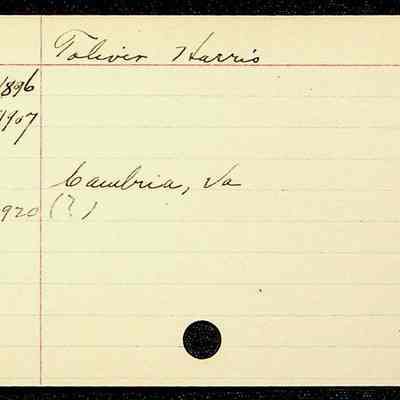 Toliver Harris
1896
1907
Cambria, Va
920 (?)